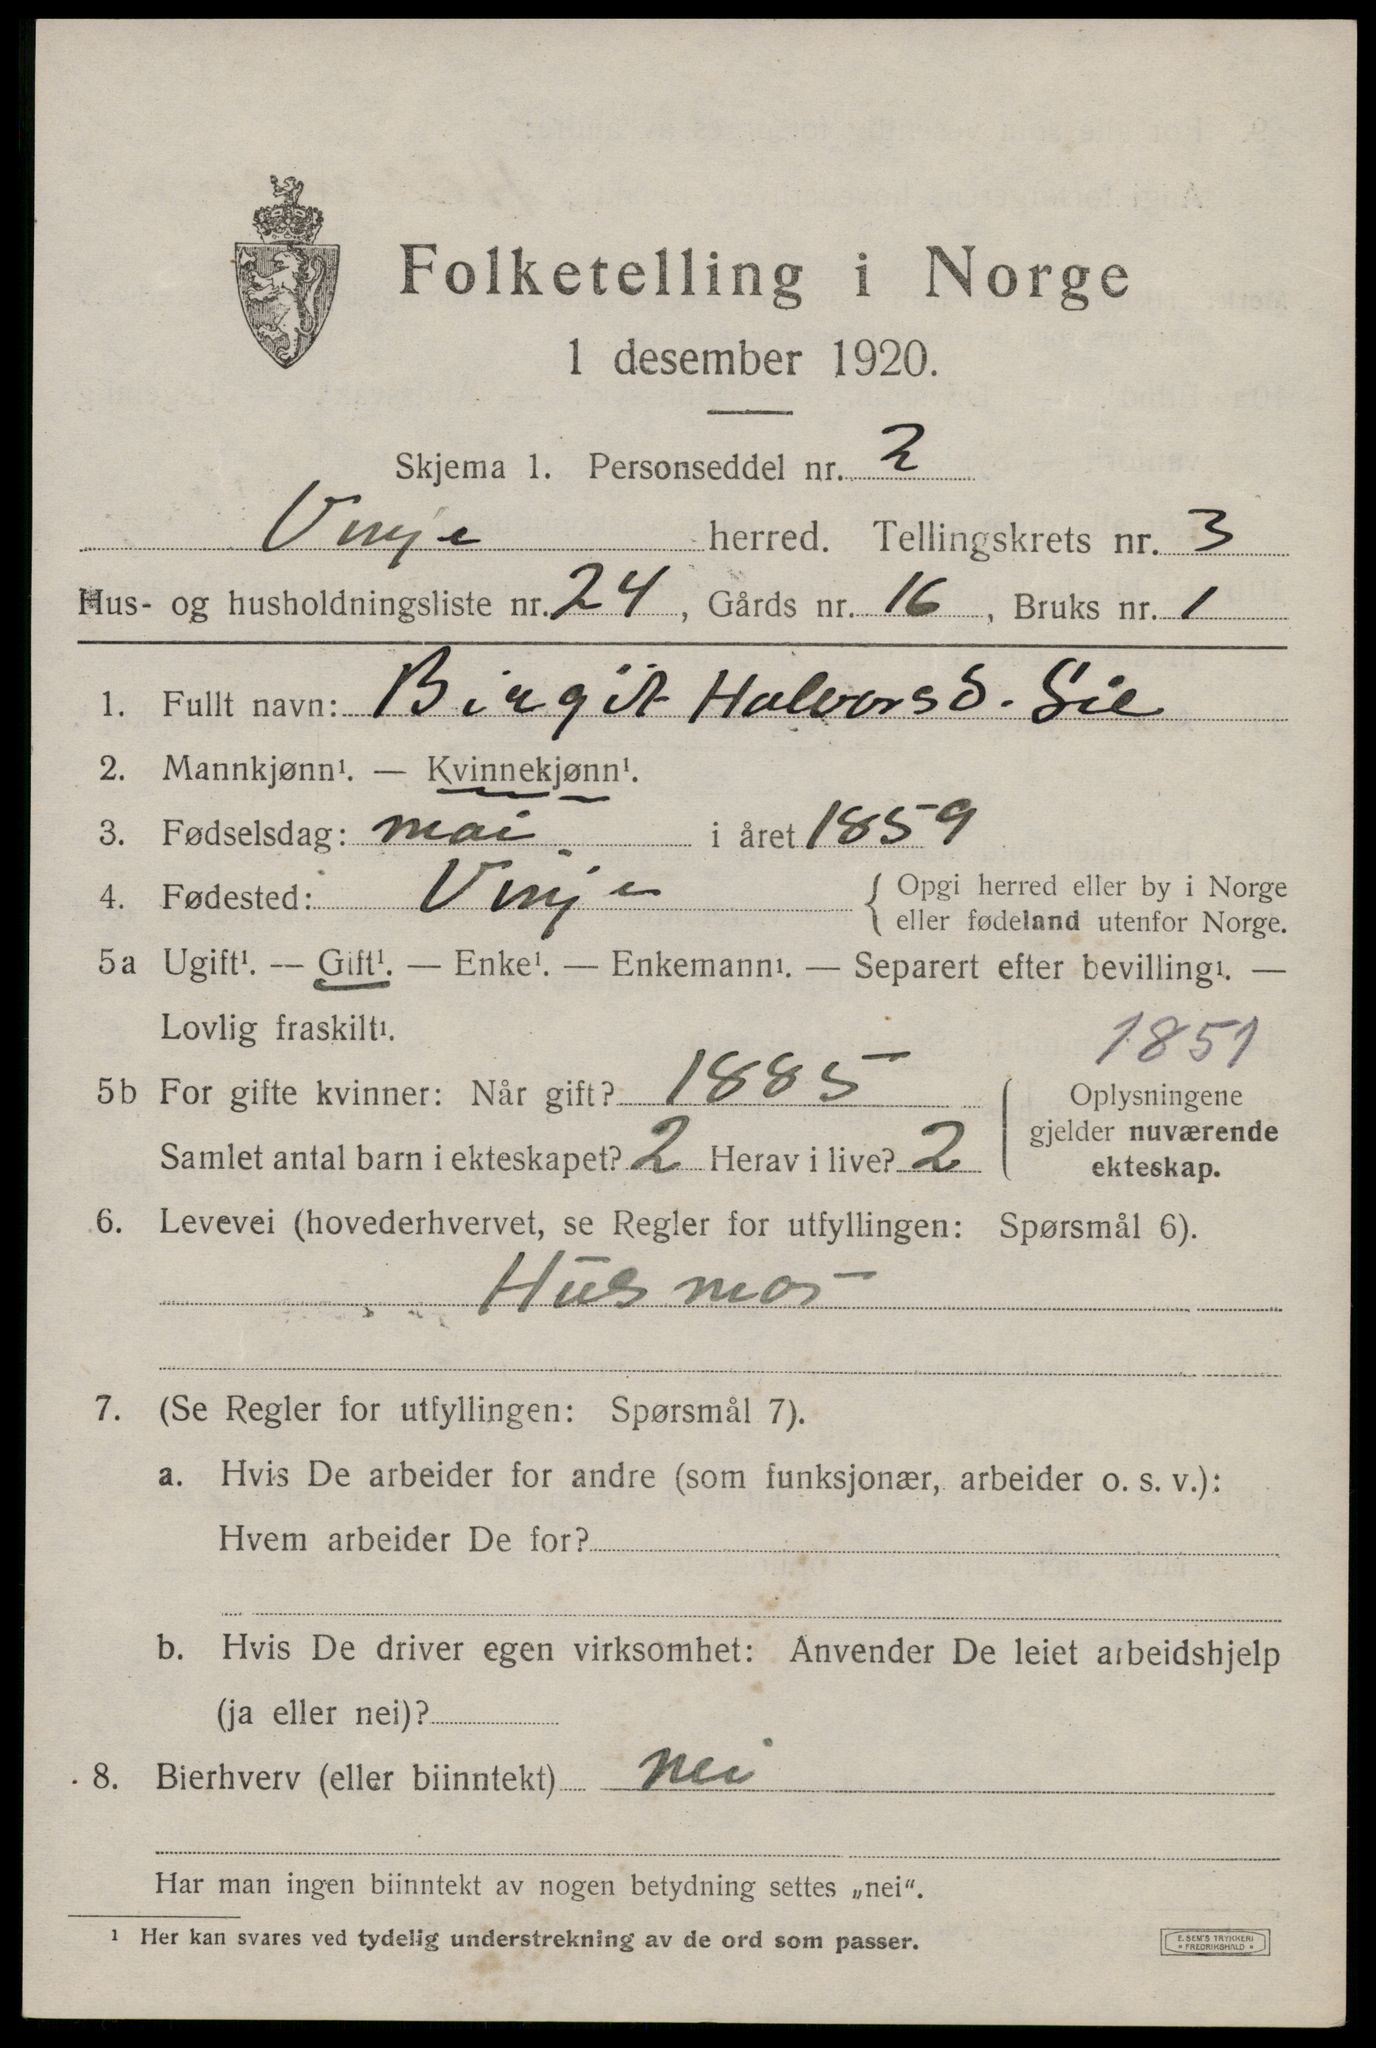 Folketelling i Norge
1 desember 1920.
Skjema 1. Personseddel nr. 2
Vinje herred. Tellingskrets nr. 3
Hus- og husholdningsliste nr. 24, Gårds nr. 16, Bruks nr. 1
1. Fullt navn: Birgit Halvorsd. Sie
2. Mannkjønn¹. — Kvinnekjønn¹.
3. Fødselsdag: mai i året 1859
4. Fødested: Vinje { Opgi herred eller by i Norge
eller fødeland utenfor Norge.
5a Ugift¹. — Gift¹. — Enke¹. — Enkemann¹. — Separert efter bevilling¹. —
Lovlig fraskilt¹.
1851
5b For gifte kvinner: Når gift? 1885
Samlet antal barn i ekteskapet? 2 Herav i live? 2
Oplysningene
gjelder nuværende
ekteskap.
6. Levevei (hovederhvervet, se Regler for utfyllingen: Spørsmål 6).
Husmor
7. (Se Regler for utfyllingen: Spørsmål 7).
a. Hvis De arbeider for andre (som funksjonær, arbeider o. s. v.):
Hvem arbeider De for?
b. Hvis De driver egen virksomhet: Anvender De leiet arbeidshjelp
(ja eller nei)?
8. Bierhverv (eller biinntekt) nei
Har man ingen biinntekt av nogen betydning settes „nei“.
¹ Her kan svares ved tydelig understrekning av de ord som passer.
E. SEM'S TRYKKERI
• FREDRIKSHALD •